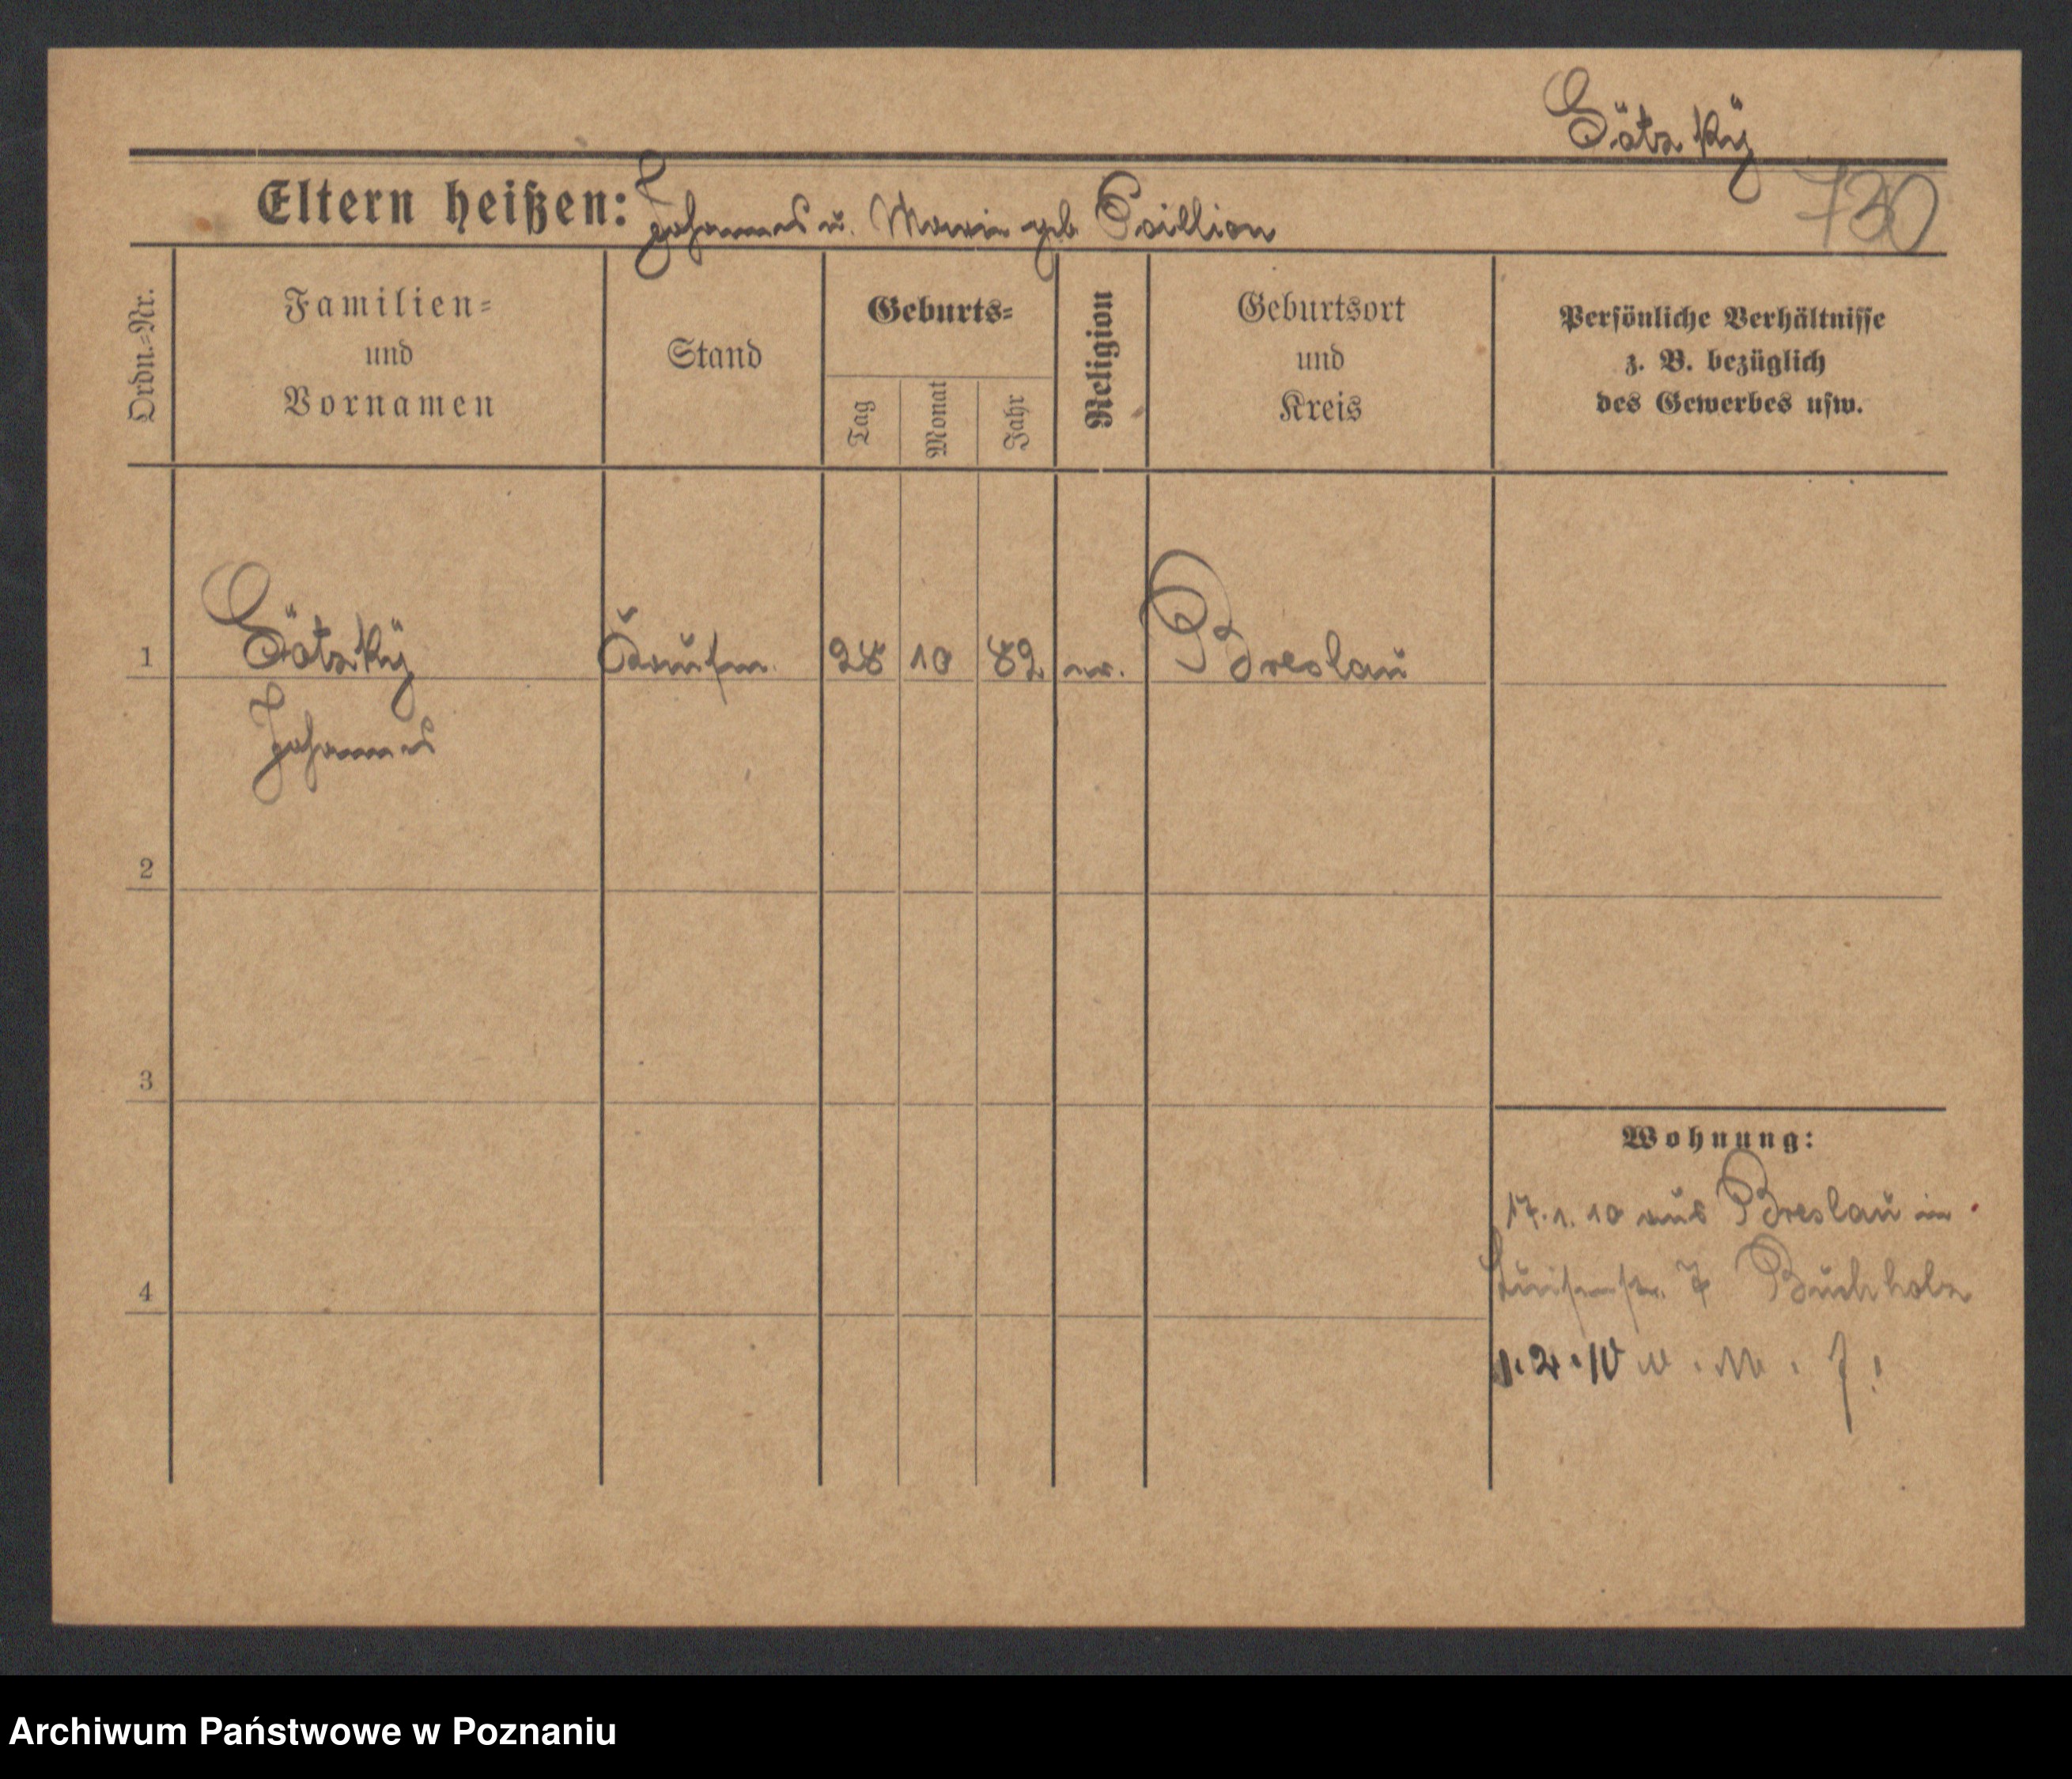 Götzky
Eltern heißen: Johannes u. Marie geb.
730
Ordn.-Nr.
Familien-
und
Vornamen
Stand
Geburts-
Tag
Monat
Jahr
Religion
Geburtsort
und
Kreis
Persönliche Verhältnisse
z. B. bezüglich
des Gewerbes usw.
1 Götzky Kaufm. 28 10 82 ev. Breslau
Johannes
2
3
4
Wohnung:
17.1.10 aus Breslau in
Luisenstr. 7 Buchholz
1.2.10
Archiwum Państwowe w Poznaniu